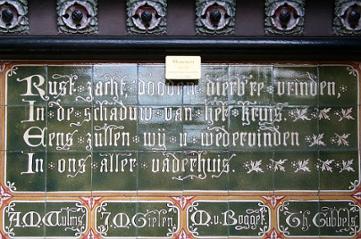 Rust zacht, doode dierb're vrinden,
In de schaduw van het kruis.
Eens zullen wij u wedervinden
In ons aller vaderhuis.
M.v. Boggel